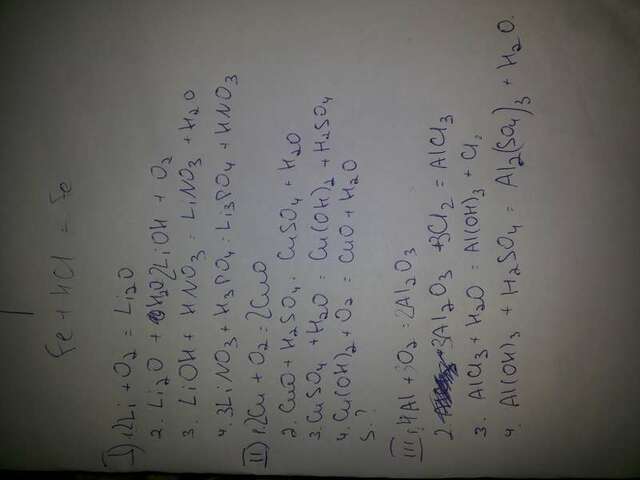 Fe + HCl = Fe
I) 1. 2Li + O2 = Li2O
2. Li2O + H2O 2LiOH + O2
3. LiOH + HNO3 = LiNO3 + H2O
4. 3LiNO3 + H3PO4 = Li3PO4 + HNO3
II) 1. 2Cu + O2 = 2CuO
2. CuO + H2SO4 = CuSO4 + H2O
3. CuSO4 + H2O = Cu(OH)2 + H2SO4
4. Cu(OH)2 + O2 = CuO + H2O
5. ?
III 1. 4Al + 3O2 = 2Al2O3
2. 3Al2O3 + 3Cl2 = AlCl3
3. AlCl3 + H2O = Al(OH)3 + Cl2
4. Al(OH)3 + H2SO4 = Al2(SO4)3 + H2O.